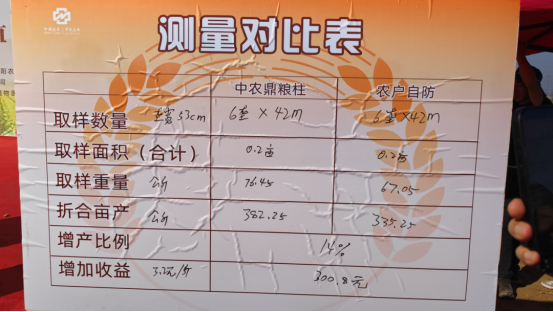 测量对比表
中农鼎粮柱 农户自防
取样数量 垄宽53cm 6垄×42m 6垄×42m
取样面积（合计） 0.2亩 0.2亩
取样重量 公斤 76.45 67.05
折合亩产 公斤 382.25 335.25
增产比例 14%
增加收益 3.2元/斤 300.8元